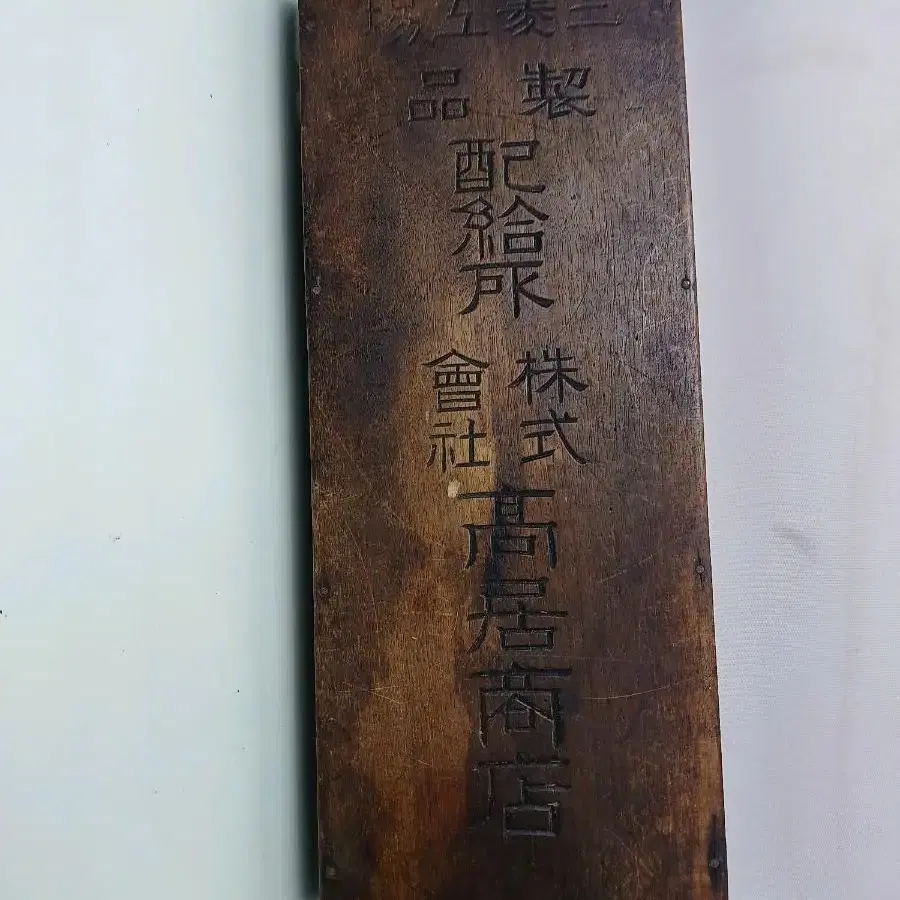 三菱工場
製品
配給所
株式
會社
高居商店